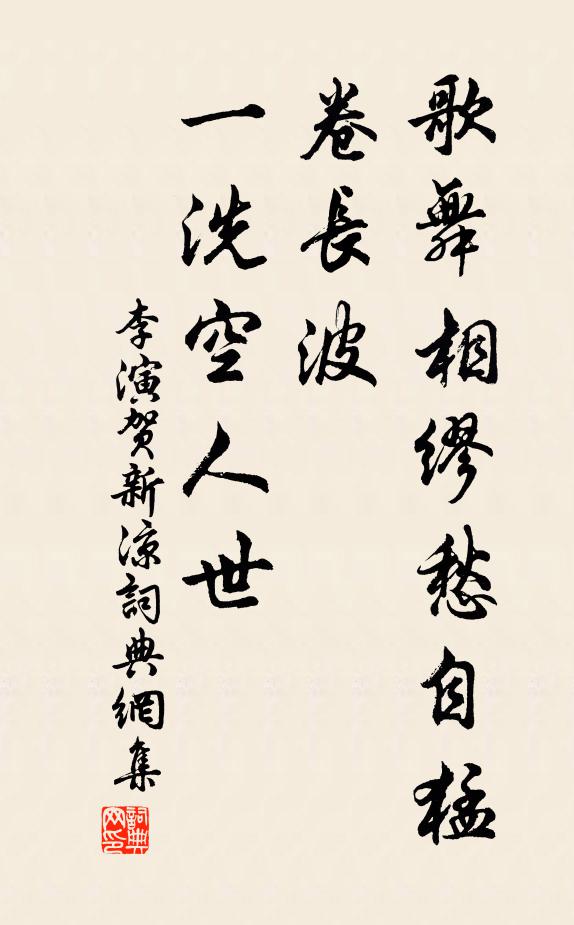 歌舞相缪愁自猛
卷長波
一洗空人世
李演贺新凉詞典網集
詞典网印